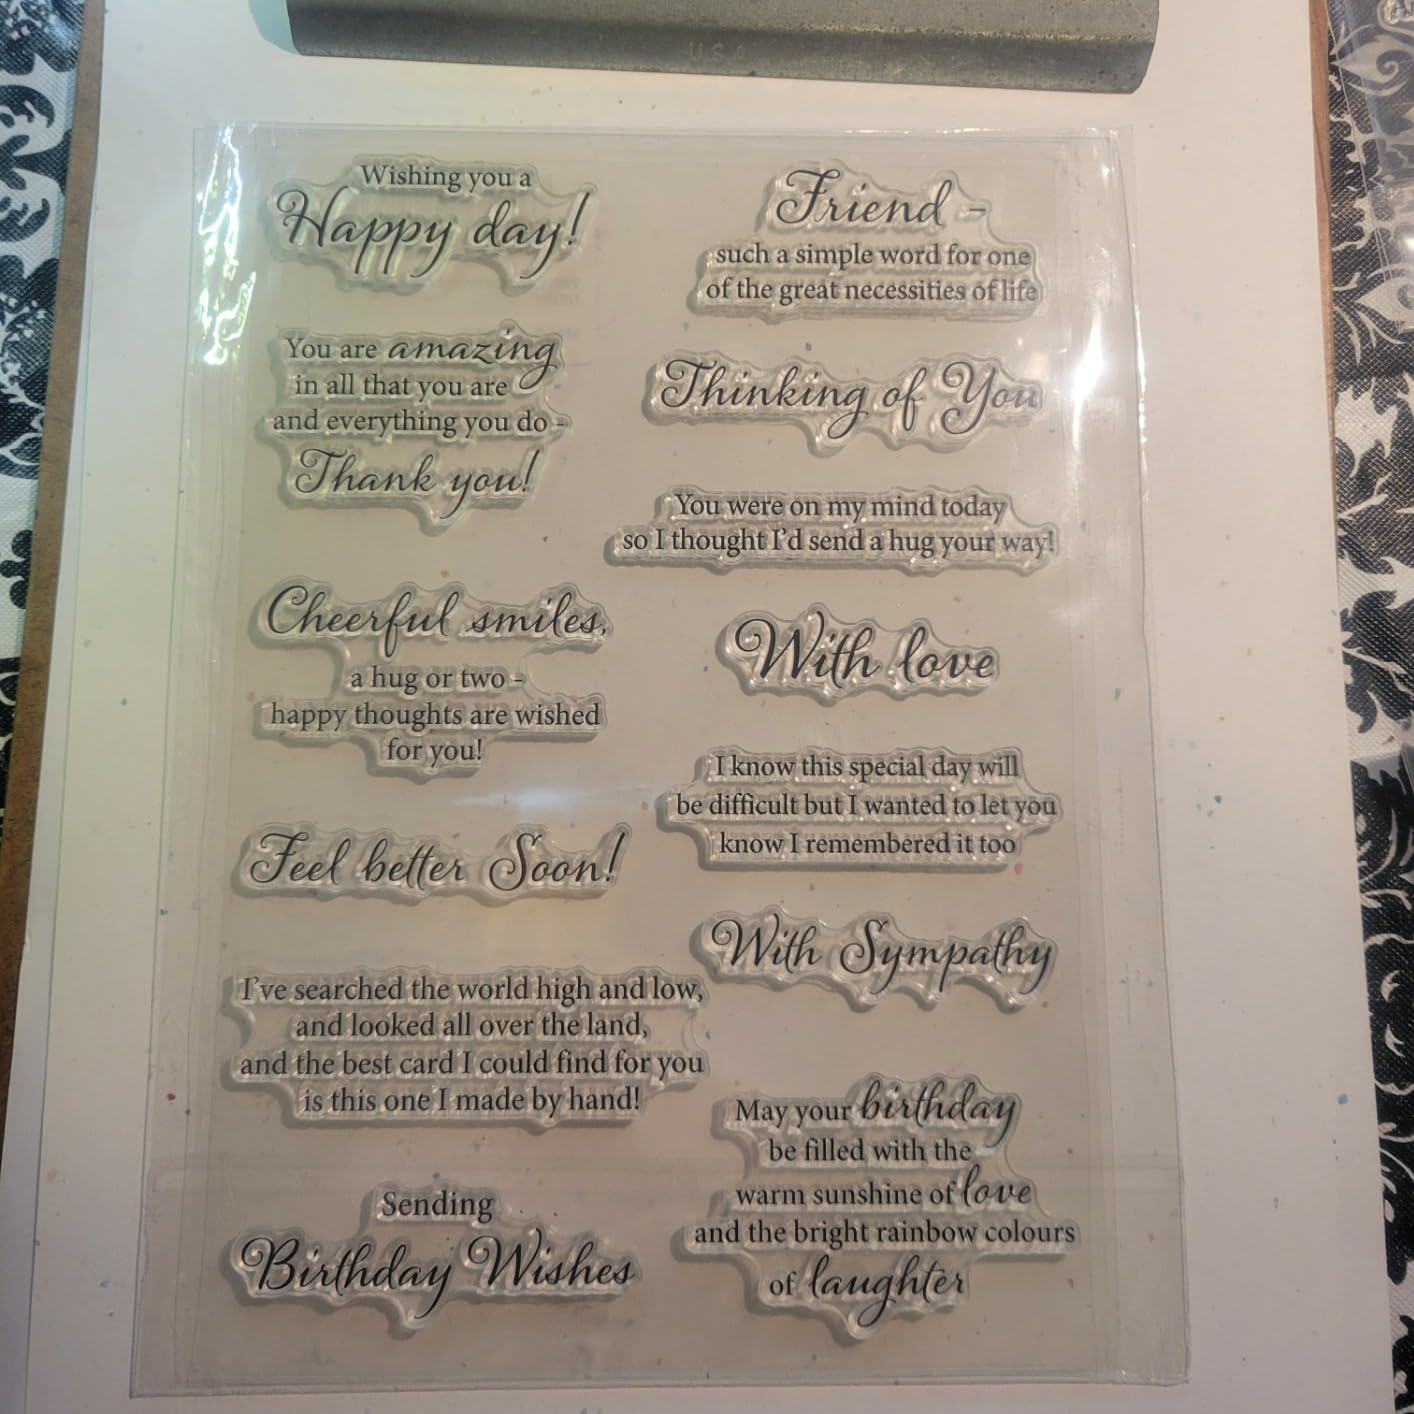 USA
Wishing you a
Happy day!
You are amazing
in all that you are
and everything you do -
Thank you!
Cheerful smiles,
a hug or two -
happy thoughts are wished
for you!
Feel better Soon!
I've searched the world high and low,
and looked all over the land,
and the best card I could find for you
is this one I made by hand!
Sending
Birthday Wishes
Friend -
such a simple word for one
of the great necessities of life
Thinking of You
You were on my mind today
so I thought I'd send a hug your way!
With love
I know this special day will
be difficult but I wanted to let you
know I remembered it too
With Sympathy
May your birthday
be filled with the
warm sunshine of love
and the bright rainbow colours
of laughter